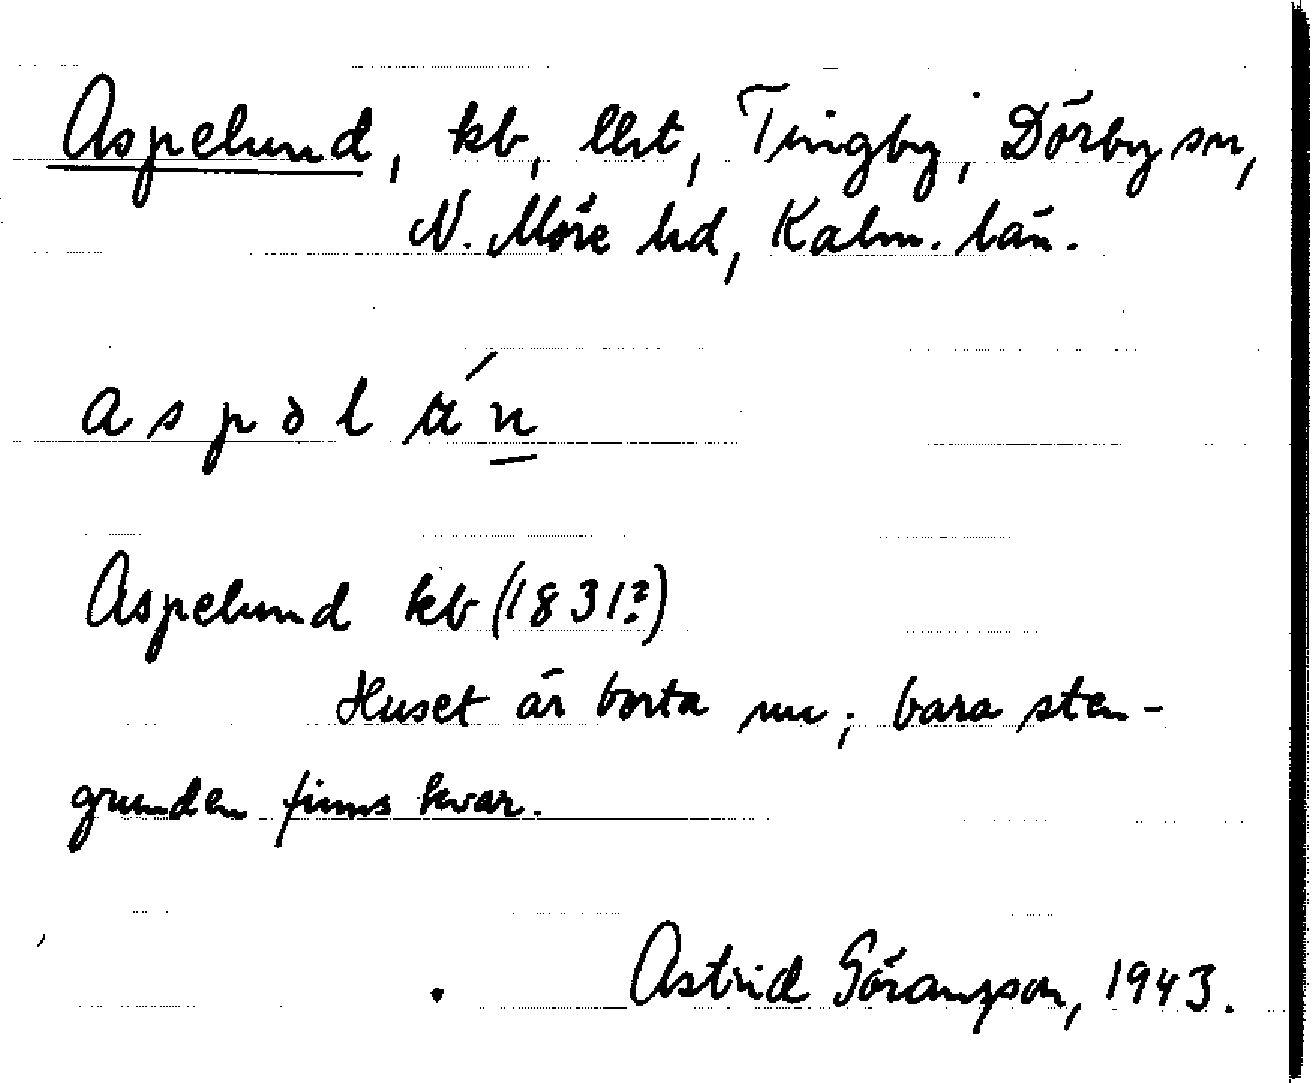 Aspelund, kb, lht, Tingby, Dörby sn,
N. Möre hd, Kalm. län.
a s p ə l á n
Aspelund kb (1831?)
Huset är borta nu; bara sten-
grunden finns kvar.
Astrid Göransson, 1943.